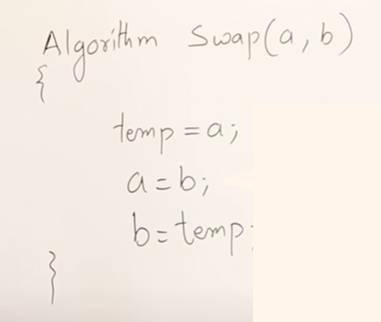 Algorithm Swap(a, b)
{
temp = a;
a = b;
b = temp;
}